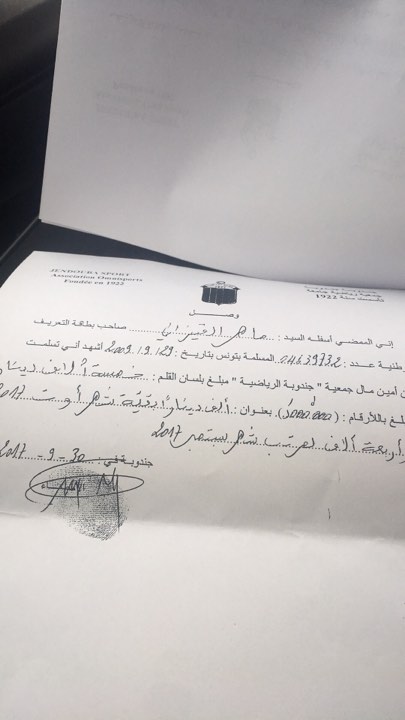 JENDOUBA SPORT
Association Omnisports
Fondée en 1922
1922
وصل
إني الممضي أسفله السيد : ماهر ... صاحب بطاقة التعريف
وطنية عدد : 04639732 المسلمة بتونس بتاريخ : 2009.19.129 أشهد أني تسلمت
من أمين مال جمعية " جندوبة الرياضية " مبلغ بلسان القلم : خمسة آلاف دينار
مبلغ بالأرقام : (5000.000) بعنوان : ألف دينار بقية شهر أوت 2017
وأربعة آلاف مرتب شهر سبتمبر 2017
جندوبة في : 30 - 9 - 2017